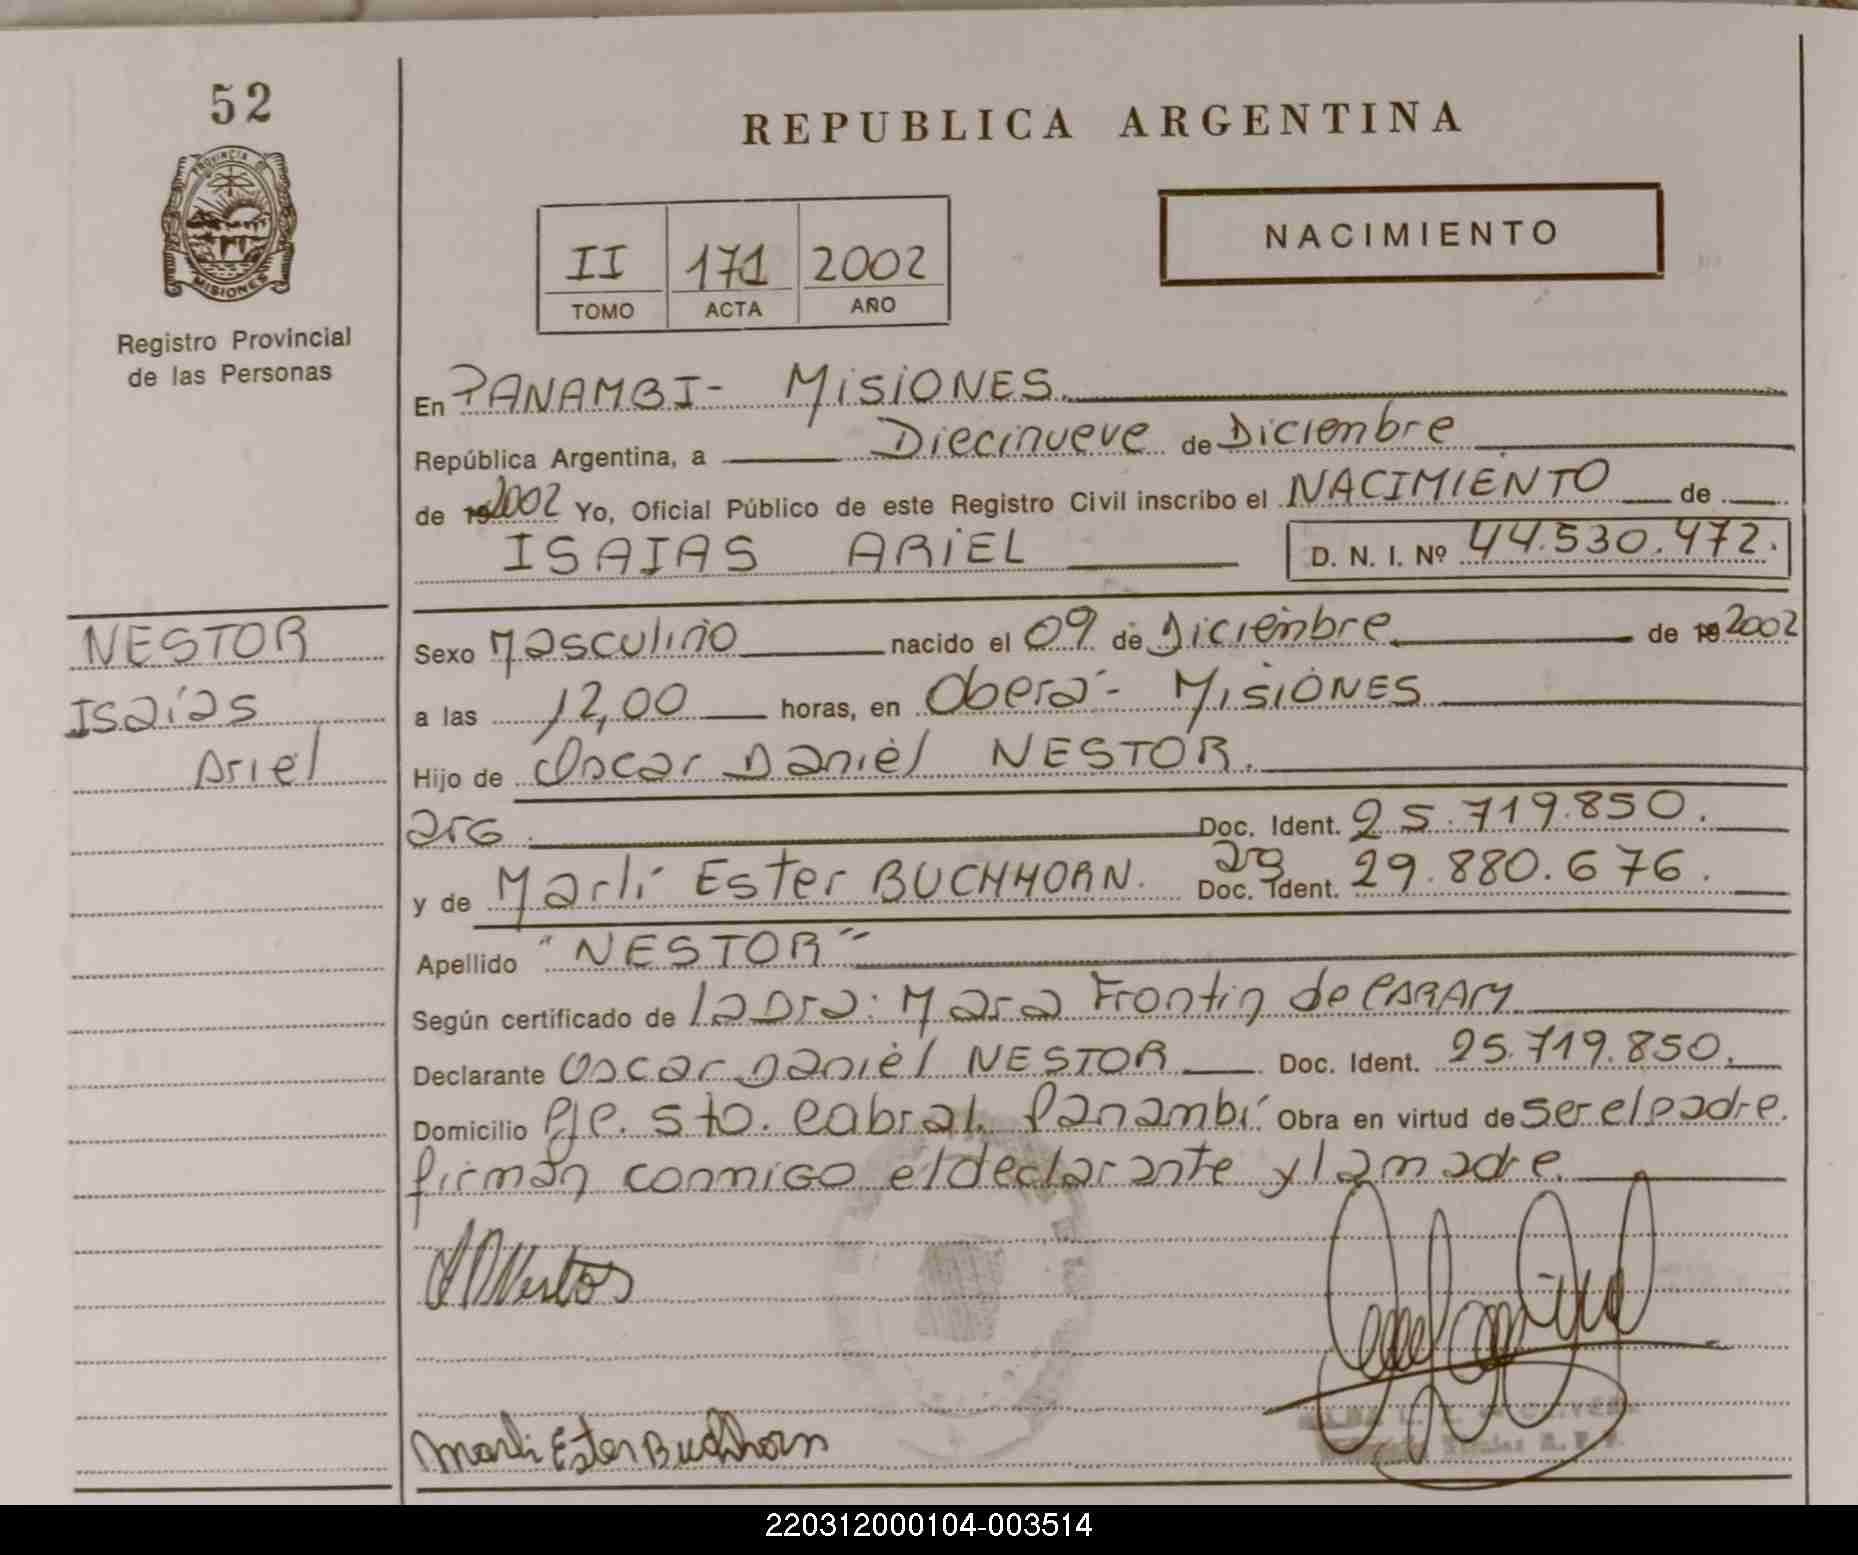 52
PROVINCIA DE
MISIONES
Registro Provincial
de las Personas
REPUBLICA ARGENTINA
II 171 2002
TOMO ACTA AÑO
NACIMIENTO
En PANAMBI- MISIONES.
República Argentina, a Diecinueve de Diciembre
de 2002 Yo, Oficial Público de este Registro Civil inscribo el NACIMIENTO de
ISAIAS ARIEL D. N. I. Nº 44.530.472.
NESTOR
Isaías
Ariel
Sexo Masculino nacido el 09 de Diciembre de 19 2002
a las 12,00 horas, en Oberá- MISIONES
Hijo de Oscar Daniel NESTOR.
arg. Doc. Ident. 25.719.850.
y de Marli Ester BUCHHORN. arg Doc. Ident. 29.880.676.
Apellido "NESTOR"
Según certificado de la Dra: Mara Frontin de CARAM
Declarante Oscar Daniel NESTOR Doc. Ident. 25.719.850.
Domicilio Pje. Sto. Cabral. Panambí Obra en virtud de ser el padre.
firman conmigo el declarante y la madre.
Marli Ester Buchhorn
220312000104-003514